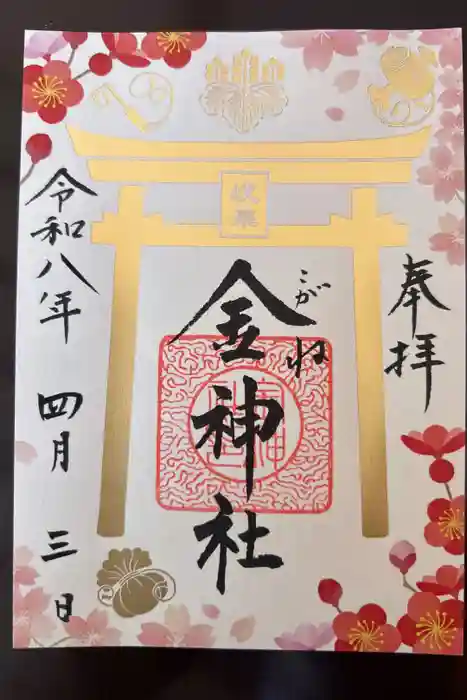 奉拝
岐阜
こがね
金神社
令和八年 四月 三日